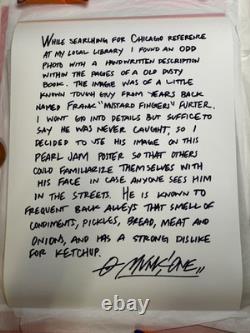 WHILE SEARCHING FOR CHICAGO REFERENCE
AT MY LOCAL LIBRARY I FOUND AN ODD
PHOTO WITH A HANDWRITTEN DESCRIPTION
WITHIN THE PAGES OF A OLD DUSTY
BOOK. THE IMAGE WAS OF A LITTLE
KNOWN TOUGH GUY FROM YEARS BACK
NAMED FRANK "MUSTARD FINGERS" FURTER.
I WONT GO INTO DETAILS BUT SUFFICE TO
SAY HE WAS NEVER CAUGHT, SO I
DECIDED TO USE HIS IMAGE ON THIS
PEARL JAM POSTER SO THAT OTHERS
COULD FAMILIARIZE THEMSELVES WITH
HIS FACE IN CASE ANYONE SEES HIM
IN THE STREETS. HE IS KNOWN TO
FREQUENT BACK ALLEYS THAT SMELL OF
CONDIMENTS, PICKLES, BREAD, MEAT AND
ONIONS, AND HAS A STRONG DISLIKE
FOR KETCHUP.